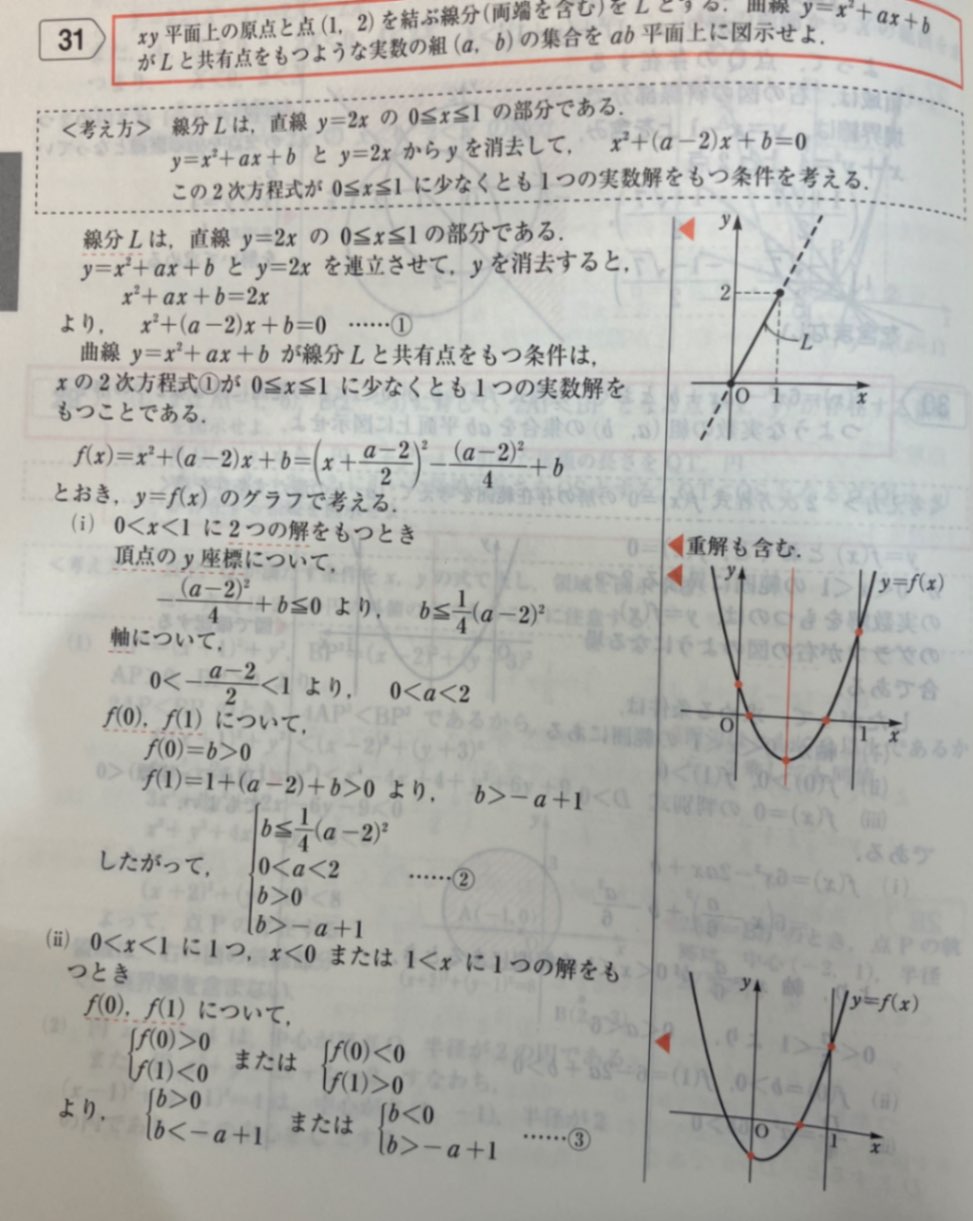 31
xy平面上の原点と点(1, 2)を結ぶ線分(両端を含む)をLとする. 曲線 y=x²+ax+b
がLと共有点をもつような実数の組(a, b)の集合をab平面上に図示せよ.
<考え方> 線分Lは, 直線 y=2x の 0≦x≦1 の部分である.
y=x²+ax+b と y=2x からyを消去して, x²+(a-2)x+b=0
この2次方程式が 0≦x≦1 に少なくとも1つの実数解をもつ条件を考える.
線分Lは, 直線 y=2x の 0≦x≦1の部分である.
y=x²+ax+b と y=2x を連立させて, yを消去すると,
x²+ax+b=2x
より, x²+(a-2)x+b=0 ……①
曲線 y=x²+ax+b が線分Lと共有点をもつ条件は,
xの2次方程式①が 0≦x≦1 に少なくとも1つの実数解を
もつことである.
f(x)=x²+(a-2)x+b=(x+\frac{a-2}{2})²-\frac{(a-2)²}{4}+b
とおき, y=f(x) のグラフで考える.
(i) 0<x<1 に2つの解をもつとき
頂点のy座標について,
-\frac{(a-2)²}{4}+b≦0 より, b≦\frac{1}{4}(a-2)²
軸について,
0<-\frac{a-2}{2}<1 より, 0<a<2
f(0), f(1) について,
f(0)=b>0
f(1)=1+(a-2)+b>0 より, b>-a+1
b≦\frac{1}{4}(a-2)²
したがって, 0<a<2 ……②
b>0
b>-a+1
(ii) 0<x<1 に1つ, x<0 または 1<x に1つの解をも
つとき
f(0), f(1) について,
f(0)>0 または f(0)<0
f(1)<0 f(1)>0
より, b>0 または b<0
b<-a+1 b>-a+1 ……③
y
2
L
O
1
x
重解も含む.
y
y=f(x)
O
1
x
y
y=f(x)
O
1
x